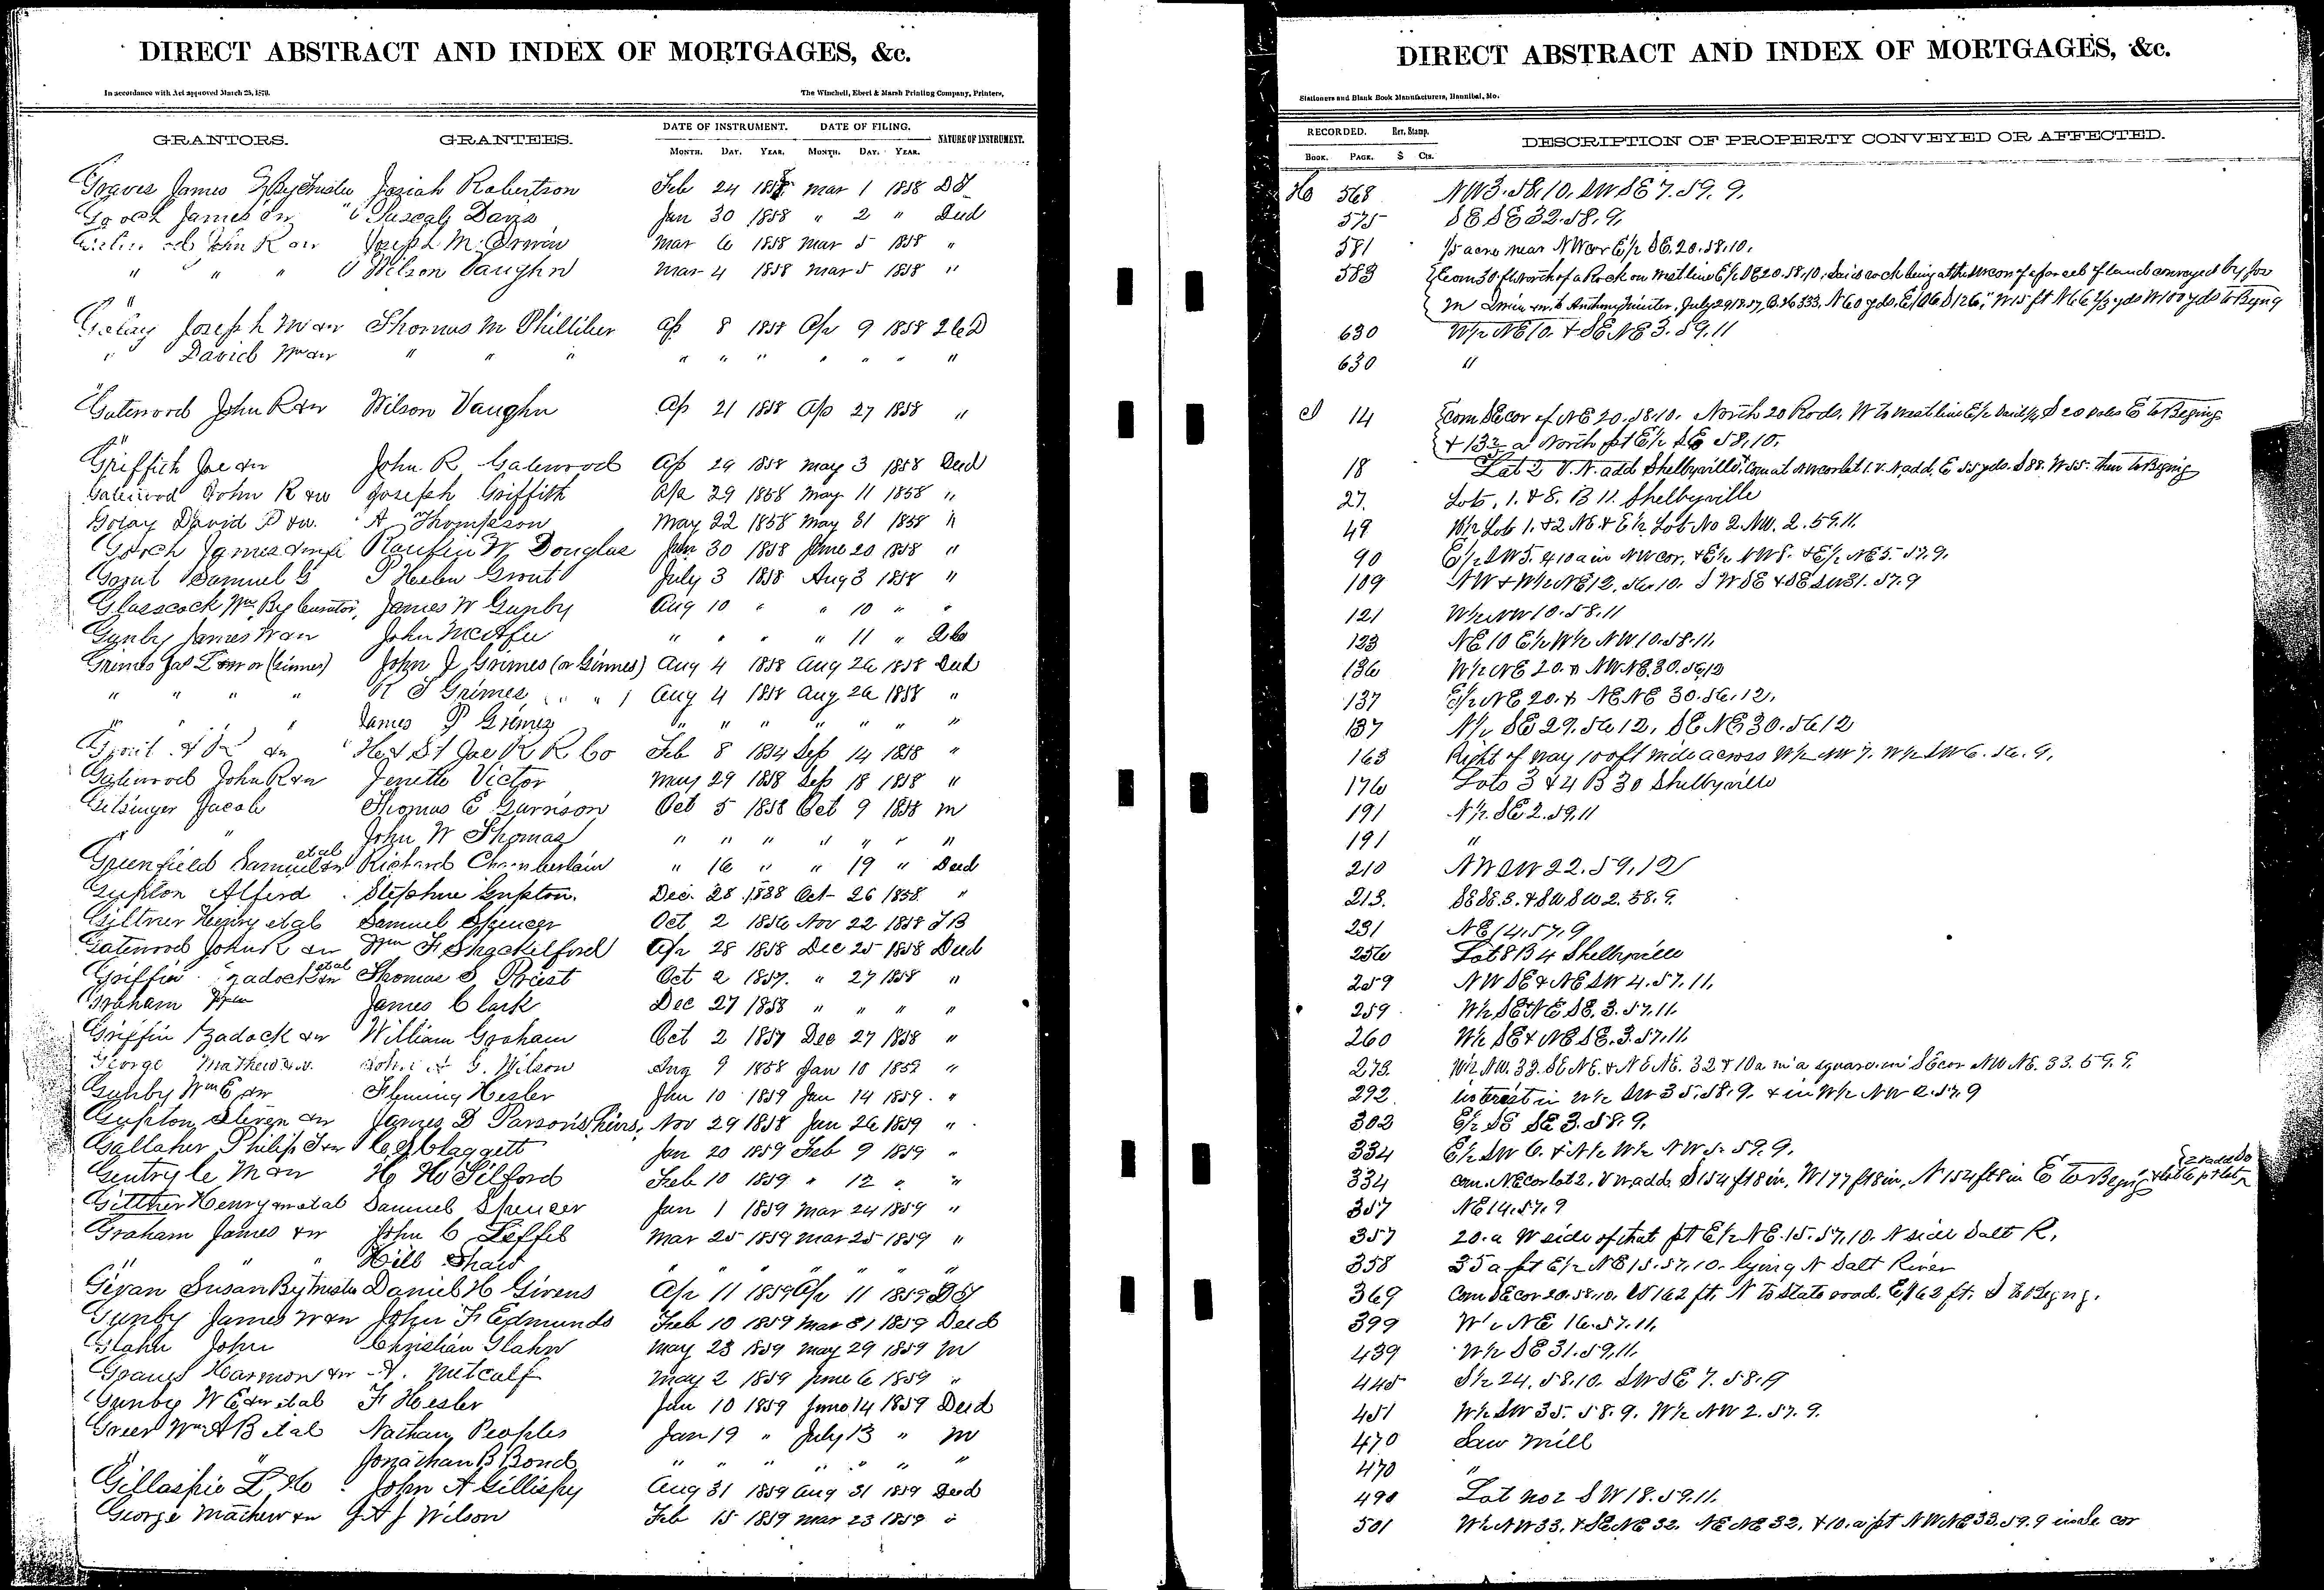 DIRECT ABSTRACT AND INDEX OF MORTGAGES, &c.
In accordance with Act approved March 25, 1870.
The Winchell, Ebert & Marsh Printing Company, Printers,
GRANTORS. GRANTEES. DATE OF INSTRUMENT. DATE OF FILING. NATURE OF INSTRUMENT.
MONTH. DAY. YEAR. MONTH. DAY. YEAR.
Graves James By Trustee Josiah Robertson Feb 24 1858 Mar 1 1858 DT
Gooch James &w " Davis Jan 30 1858 " 2 " Deed
John R &w Joseph M. Mar 6 1858 Mar 5 1858 "
" " " Wilson Vaughn Mar 4 1858 Mar 5 1858 "
Joseph M &w Thomas M Phillips Ap 8 1858 Apr 9 1858
" David W &w " " " " " " " " " "
Gatewood John R &w Wilson Vaughn Ap 21 1858 Ap 27 1858 "
Griffith Joe &w John R Gatewood Ap 29 1858 May 3 1858 Deed
Gatewood John R &w Joseph Griffith Apr 29 1858 May 11 1858 "
Golay David P &w. A Thompson May 22 1858 May 31 1858 "
Gooch James & wife Rankin W Douglas Jan 30 1858 June 20 1858 "
Samuel G Helen Grout July 3 1858 Aug 3 1858 "
Glasscock Wm By Curator, James W Gunby Aug 10 " " 10 " "
Gunby James W &w John McAfee " " " " 11 "
Grimes Jas &w or (Ginnes) John J Grimes (or Ginnes) Aug 4 1858 Aug 26 1858 Deed
" " " " R S Grimes " " Aug 4 1858 Aug 26 1858 "
" " " James P Grimes " " " " " " "
&w H & St Joe R R Co Feb 8 1854 Sep 14 1858 "
Gatewood John R &w Jenette Victor May 29 1858 Sep 18 1858 "
Gilsinger Jacob Thomas E Garrison Oct 5 1858 Oct 9 1858 M
" " John W Thomas " " " " " " "
Greenfield Samuel &w etal Richard Chamberlain " 16 " " 19 " Deed
Gupton Alferd Stephen Gupton. Dec. 28 1838 Oct 26 1858. "
Giltner Henry etal Samuel Spencer Oct 2 1856 Nov 22 1858 TB
Gatewood John R &w Wm F Shackelford Apr 28 1858 Dec 25 1858 Deed
Griffin Zadock &w etal Thomas S Priest Oct 2 1857. " 27 1858 "
Graham Wm James Clark Dec 27 1858 " " " "
Griffin Zadock &w William Graham Oct 2 1857 Dec 27 1858 "
George Mathew &w. John G. Wilson Aug 9 1858 Jan 10 1859 "
Gunby Wm E &w Fleming Hesler Jan 10 1859 Jan 14 1859. "
Gupton Steven &w James D Parsons heirs, Nov 29 1858 Jan 26 1859 "
Gallaher Philip T &w Claggett Jan 20 1859 Feb 9 1859 "
Gentry M &w H H Tilford Feb 10 1859 " 12 " "
Gilther Henry &w etal Samuel Spencer Jan 1 1859 Mar 24 1859 "
Graham James &w John C Leffel Mar 25 1859 Mar 25 1859 "
" " " Hill Shaw " " " " " " "
Givan Susan By Trustee Daniel H Givens Apr 11 1859 Apr 11 1859 DT
Gunby James W &w John F Edmunds Feb 10 1859 Mar 31 1859 Deed
Glahn John Christian Glahn May 23 1859 May 29 1859 M
Graves Harmon &w A. Metcalf May 2 1859 June 6 1859 "
Gunby W E &w etal F Hesler Jan 10 1859 June 14 1859 Deed
Greer Wm A B etal Nathan Peoples Jan 19 " July 13 " M
" " Jonathan B Bond " " " " " " "
Gillaspie L H John A Gillispy Aug 31 1859 Aug 31 1859 Deed
George Mathew &w J A J Wilson Feb 15 1859 Mar 23 1859 "
DIRECT ABSTRACT AND INDEX OF MORTGAGES, &c.
Stationers and Blank Book Manufacturers, Hannibal, Mo.
RECORDED. Rev. Stamp. DESCRIPTION OF PROPERTY CONVEYED OR AFFECTED.
BOOK. PAGE. $ Cts.
H 568 NW 3. 58. 10. SW SE 7. 59. 9.
575 SE SE 32. 58. 9.
581 1/5 acre near NW cor E/2 SE. 20. 58. 10.
583 Com 30 ft North of a Rock on West line E/2 SE 20. 58. 10. Said rock being at the cor of a parcel of land conveyed by Jos
M &w to Anthony Minter, July 29 1857, B H 333, N 60 yds, W 15 ft N 66 2/3 yds W 100 yds to Beging
630 W/2 NE 10. & SE. NE 3. 59. 11
630 "
I 14 Com SE cor of NE 20. 58. 10. North 20 Rods. W to West line E/2 Said 1/4 S 20 poles E to Beging
& 13 1/2 a North pt E/2 SE 58. 10.
18 Lot 2 V. N. add Shelbyville. Com at NW cor lot 1. V. N add, E 55 yds. S 88. W 55. then to Beging
27. Lots. 1. & 8. B 11. Shelbyville
49 W/2 Lot 1. & 2 NE & E/2 Lot No 2. NW. 2. 59. 11.
90 E/2 SW 5. & 10 a in NW cor. & E/2 NW 8. & E/2 NE 5. 57. 9.
109 NW & W/2 NE 12. 56. 10. SW SE & SE SW 31. 57. 9
121 W/2 NW 10. 58. 11
123 NE 10 E/2 W/2 NW 10. 58. 11.
136 W/2 NE 20. & NW NE 30. 56. 12
137 E/2 NE 20. & NE NE 30. 56. 12.
137 N/2 SE 29. 56 12, SE NE 30. 56 12
163 Right of way 100 ft wide across W/2 NW 7. W/2 SW 6. 56. 9.
176 Lots 3 & 4 B 30 Shelbyville
191 N/2. SE 2. 59. 11
191 "
210 NW SW 22. 59. 12
213. SE SE. 3. & SW SW 2. 58. 9.
231 NE 14. 57. 9
256 Lot 8 B 4 Shelbyville
259 NW SE & NE SW 4. 57. 11.
259 W/2 SE & NE SE. 3. 57. 11.
260 W/2 SE & NE SE. 3. 57. 11.
273. W/2 NW. 33. SE NE. & NE NE. 32 & 10 a in a square in SE cor NW NE. 33. 59. 9.
292. interest in W/2 SW 35. 58. 9. & in W/2 NW 2. 57. 9
302 E/2 SE SE 3. 58. 9.
334 E/2 SW 6. & N/2 W/2 NW 5. 59. 9.
334 Com. NE cor lot 2, V N add. S 154 ft 8 in, W 177 ft 8 in, N 154 ft 8 in E to Beging
357 NE 14. 57. 9
357 20. a W side of that pt E/2 NE. 15. 57. 10. N side Salt R.
358 35 a pt E/2 NE 15. 57. 10. lying N Salt River
369 Com SE cor 20. 58. 10. W 162 ft. N to State road. E 162 ft. S to Begng.
399 W/2 NE 16. 57. 11.
439 W/2 SE 31. 59. 11.
445 S/2 24. 58. 10. SW SE 7. 58. 9
451 W/2 SW 35. 58. 9. W/2 NW 2. 57. 9.
470 Saw Mill
470 "
490 Lot No 2 SW 18. 59. 11.
501 W/2 NW 33. & SE NE 32. NE NE 32. & 10. a pt NW NE 33. 59. 9 in SE cor